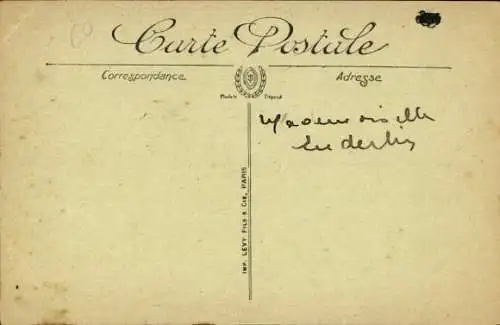 60
Carte Postale
Correspondance
Adresse
Modèle Déposé
Mademoiselle
Enderlin
IMP. LEVY FILS & CIE, PARIS